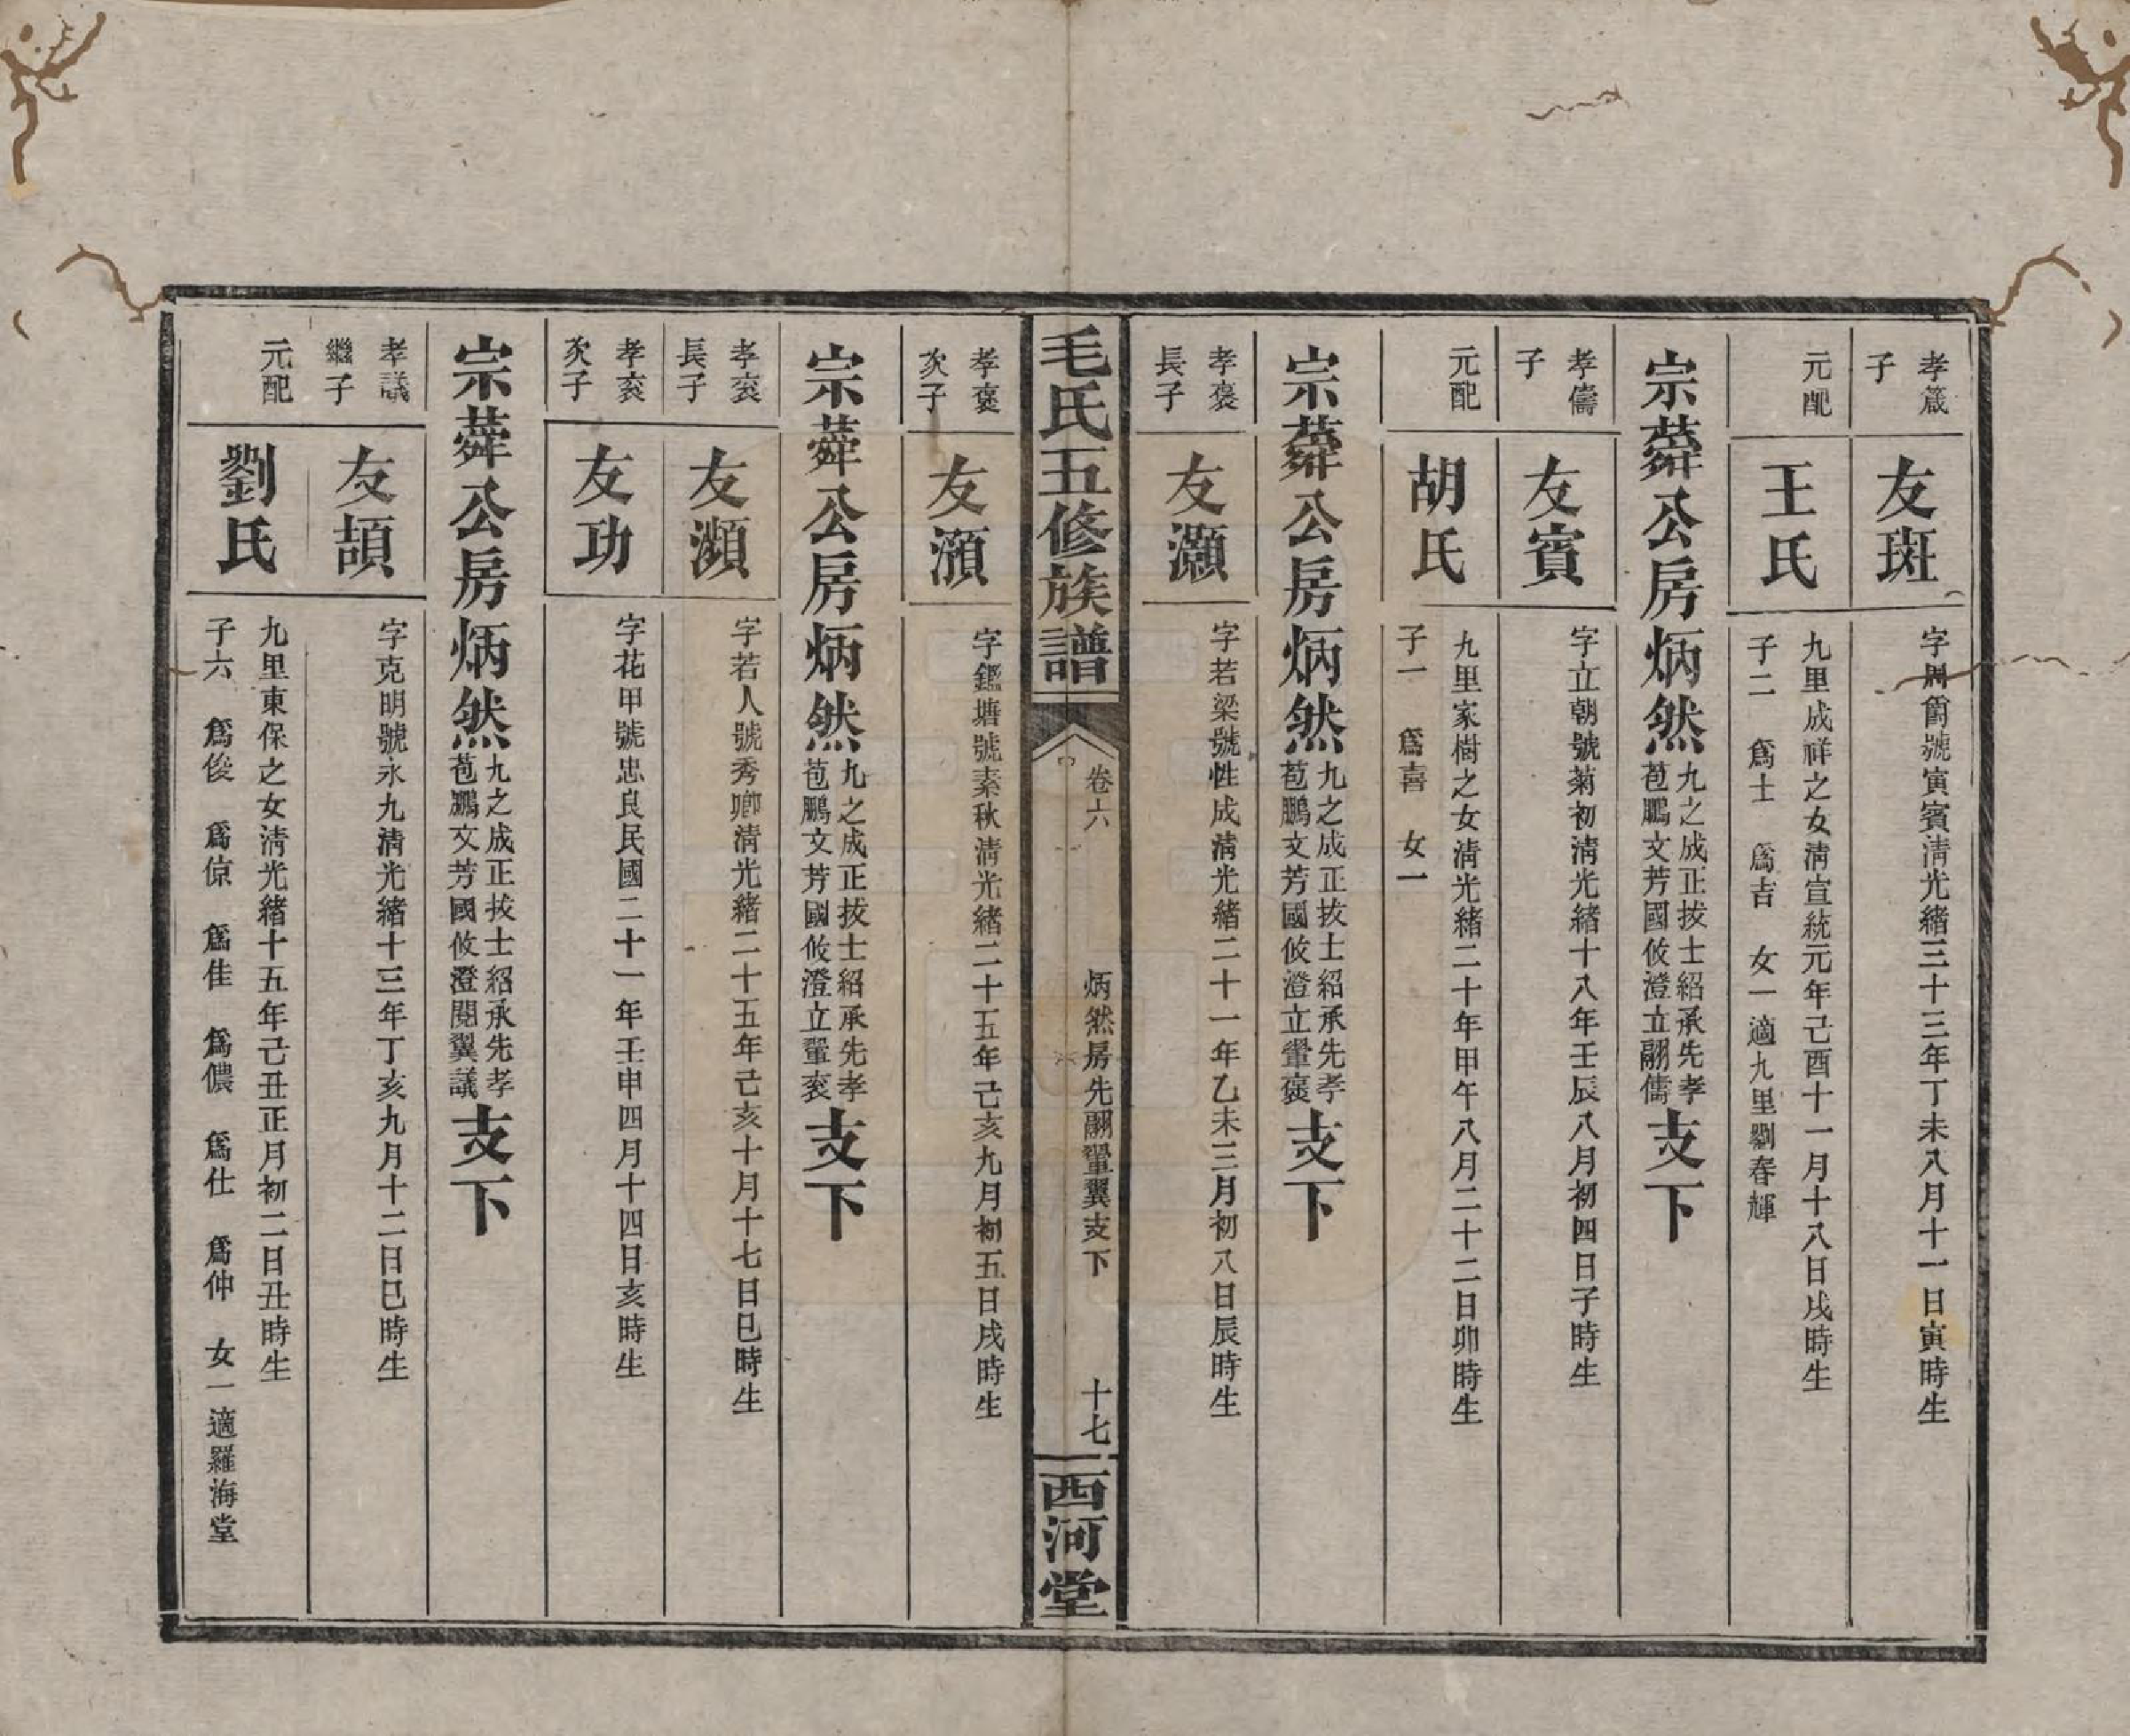 孝箴
子
友斑
字周爵號寅賓淸光緒三十三年丁未八月十一日寅時生
元配
王氏
九里成祥之女淸宣統元年己酉十一月十八日戌時生
子二　爲士　爲吉　女一適九里劉春輝
宗蕣公房炳然
九之成正拔士紹承先孝
苞鵬文芳國攸澄立翮儔
支下
孝儔
子
友賓
字立朝號菊初淸光緒十八年壬辰八月初四日子時生
元配
胡氏
九里家樹之女淸光緒二十年甲午八月二十二日卯時生
子一　爲喜　女一
宗蕣公房炳然
九之成正拔士紹承先孝
苞鵬文芳國攸澄立翬褒
支下
孝褒
長子
友灝
字若梁號性成淸光緒二十一年乙未三月初八日辰時生
毛氏五修族譜
卷六
炳然房先翮翬翼支下
十七
西河堂
孝褒
次子
友澬
字鑑塘號素秋淸光緒二十五年己亥九月初五日戌時生
宗蕣公房炳然
九之成正拔士紹承先孝
苞鵬文芳國攸澄立翬袞
支下
孝袞
長子
友瀕
字若人號秀卿淸光緒二十五年己亥十月十七日巳時生
孝袞
次子
友功
字花甲號忠良民國二十一年壬申四月十四日亥時生
宗蕣公房炳然
九之成正拔士紹承先孝
苞鵬文芳國攸澄閱翼議
支下
孝議
繼子
友頡
字克明號永九淸光緒十三年丁亥九月十二日巳時生
元配
劉氏
九里東保之女淸光緒十五年己丑正月初二日丑時生
子六　爲俊　爲倞　爲佳　爲儂　爲仕　爲仲　女一適羅海堂